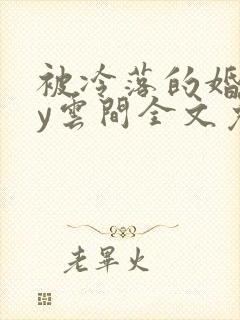 被冷落的婚
y雲間全文
老畢火